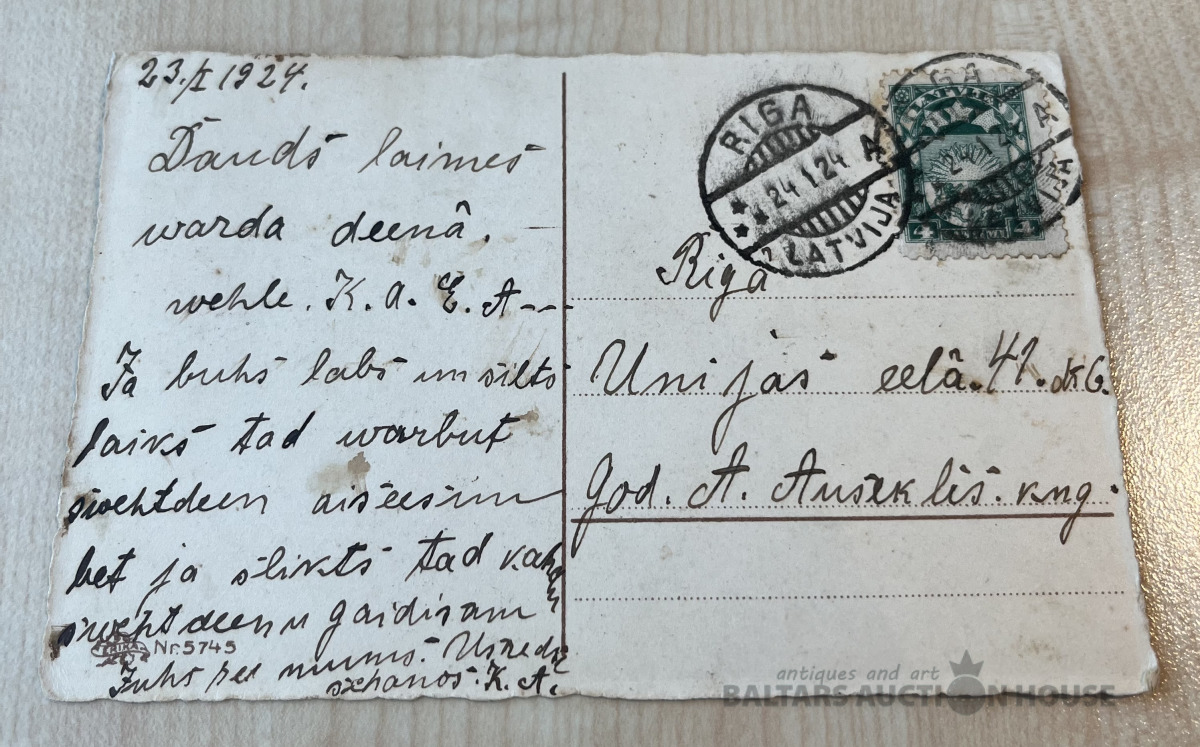 23./I 1924.
Dauds laimes
warda deenâ.
wehle. K. A. E. A---
Ja buhs labs un silts
laiks tad warbut
swehtdeen aisеesim
bet ja slikts tad kahdu
swehtdeenu gaidisam
Juhs pee mums. Usredse
schanos. K. A.
Nr. 5745
RIGA
24.1.24
A
LATVIJA
RIGA
24.1.24
LATVIJA
4
4
Rigâ
Unijas eelâ. 41. dk 6.
God. A. Auseklis. kng.
antiques and art
BALTARS AUCTION HOUSE